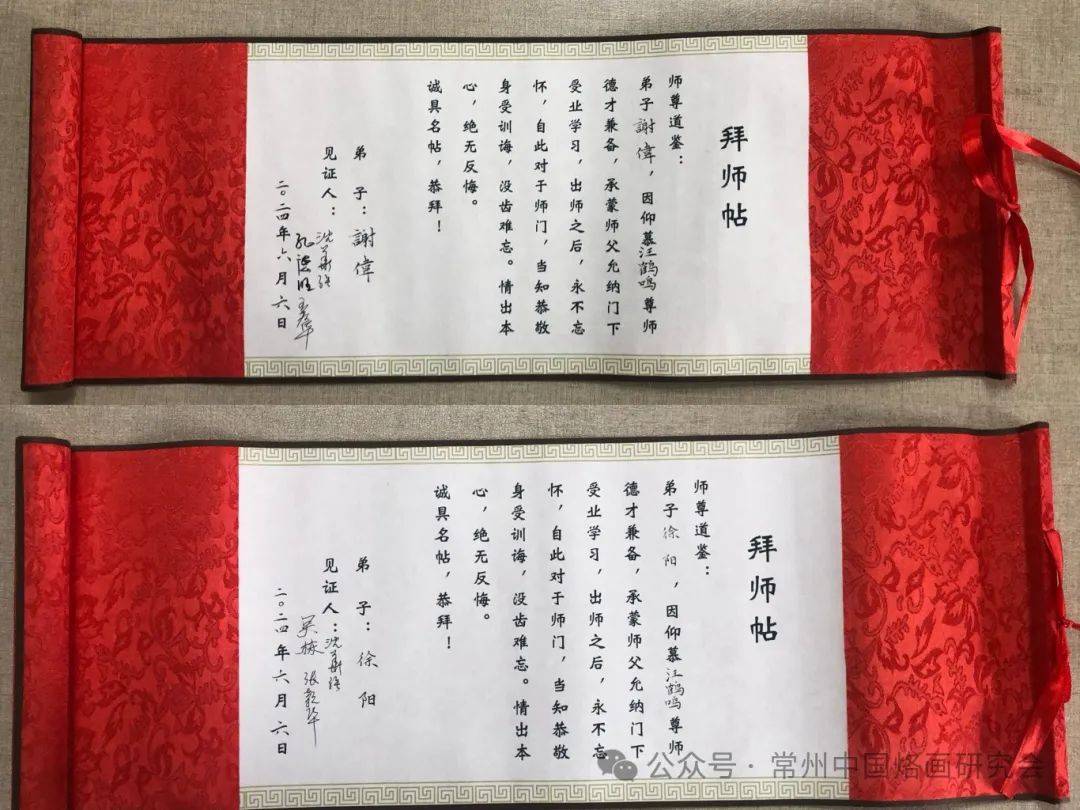 拜师帖
师尊道鉴：
弟子謝偉，因仰慕汪鹤鸣尊师
德才兼备，承蒙师父允纳门下
受业学习，出师之后，永不忘
怀，自此对于师门，当知恭敬
身受训诲，没齿难忘。情出本
心，绝无反悔。
诚具名帖，恭拜！
弟子：謝偉
见证人：
二〇二四年六月六日
拜师帖
师尊道鉴：
弟子徐阳，因仰慕汪鹤鸣尊师
德才兼备，承蒙师父允纳门下
受业学习，出师之后，永不忘
怀，自此对于师门，当知恭敬
身受训诲，没齿难忘。情出本
心，绝无反悔。
诚具名帖，恭拜！
弟子：徐阳
见证人：
二〇二四年六月六日
公众号·常州中国烙画研究会